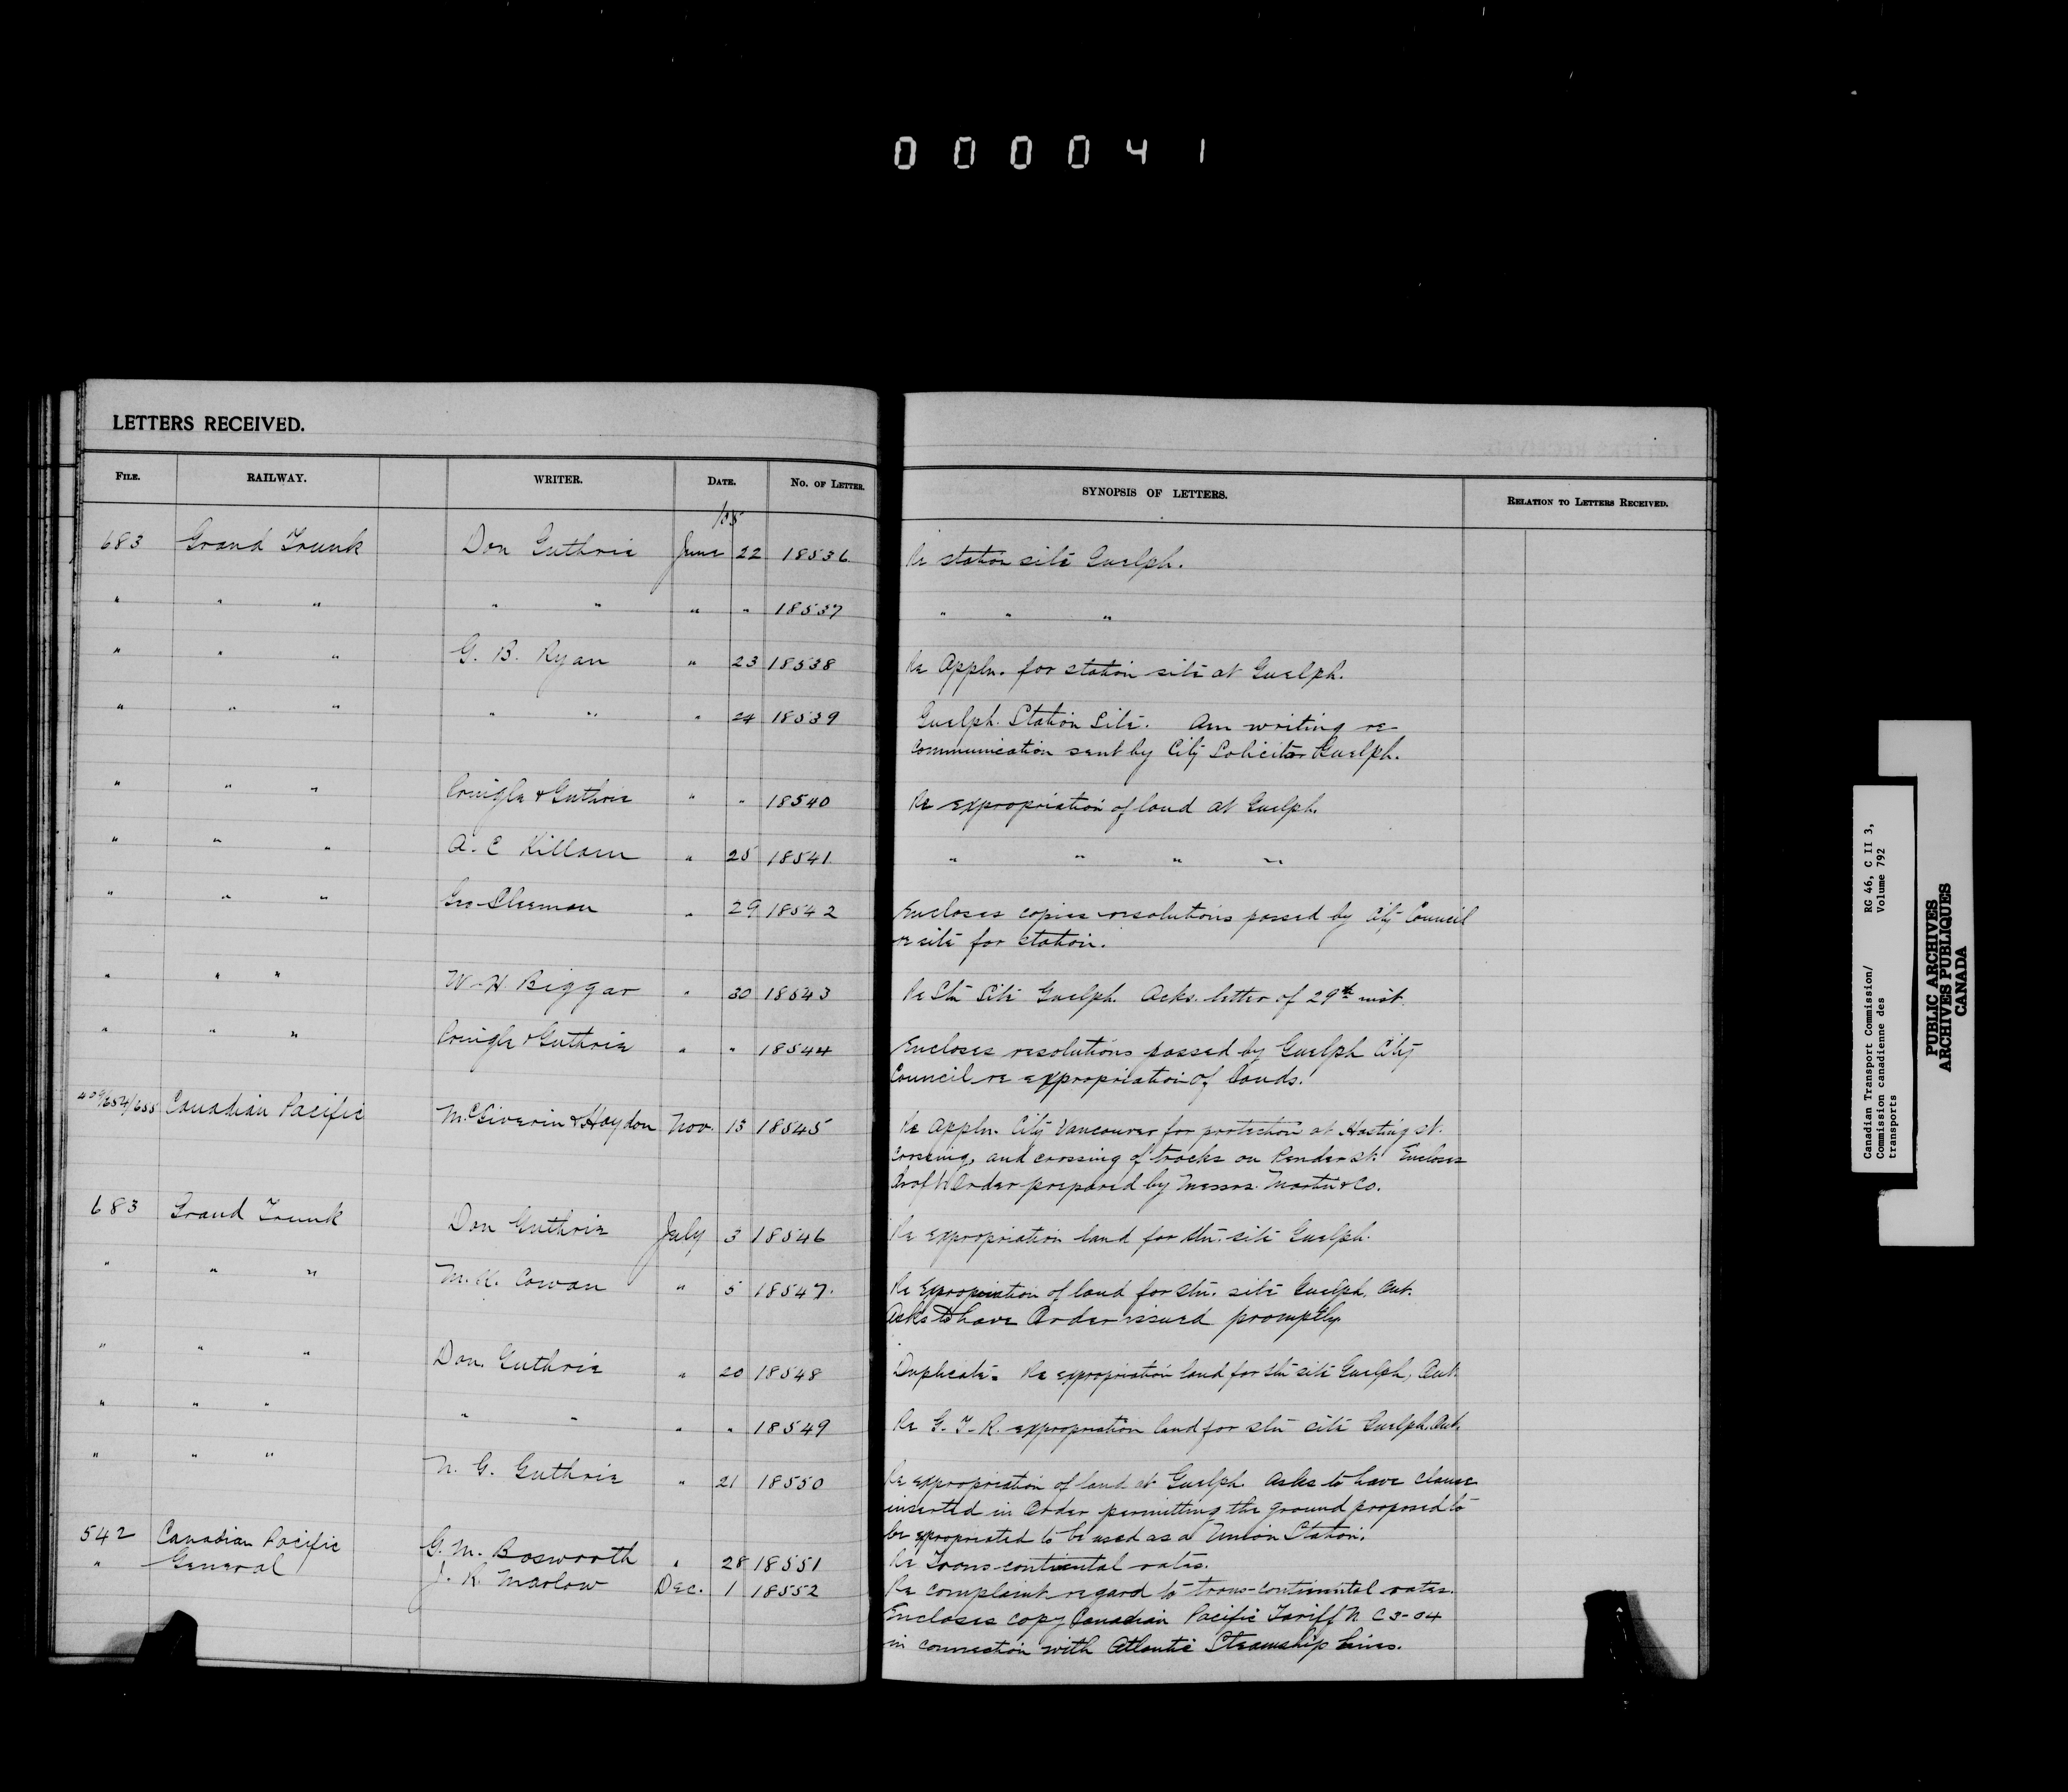 000041
LETTERS RECEIVED.
FILE. RAILWAY. WRITER. DATE. No. OF LETTER. SYNOPSIS OF LETTERS. RELATION TO LETTERS RECEIVED.
683 Grand Trunk Don Guthrie June 22 18536 Re station site Guelph.
" " " " " " " 18537 " " "
" " " G. B. Ryan " 23 18538 Re Appln. for station site at Guelph.
" " " " " " 24 18539 Guelph Station Site. Am writing re
communication sent by City Solicitor Guelph.
" " " & Guthrie " " 18540 Re expropriation of land at Guelph.
" " " A. C Killam " 25 18541 " " " "
" " " Geo Sleeman " 29 18542 Encloses copies resolutions passed by City Council
re site for station.
" " " W. H. Biggar " 30 18543 Re Stn Site Guelph. Acks. letter of 29th inst.
" " " & Guthrie " " 18544 Encloses resolutions passed by Guelph City
Council re expropriation of lands.
/654/655 Canadian Pacific McGiverin & Haydon Nov. 13 18545 Re Appln. City Vancouver for protection at Hasting st.
crossing, and crossing of tracks on Pender st. Encloses
draft Order prepared by Messrs. Martin & Co.
683 Grand Trunk Don Guthrie July 3 18546 Re expropriation land for stn. site Guelph.
" " " M. K. Cowan " 5 18547. Re Expropriation of land for stn. site Guelph, Ont.
Asks to have Order issued promptly.
" " " Don. Guthrie " 20 18548 Duplicate. Re expropriation land for stn site Guelph, Ont.
" " " " " " " 18549 Re G. T. R. expropriation land for stn site Guelph, Ont.
" " " N. G. Guthrie " 21 18550 Re expropriation of land at Guelph. Asks to have clause
inserted in Order permitting the ground proposed to
be expropriated to be used as a Union Station.
542 Canadian Pacific G. M. Bosworth " 28 18551 Re Trans-continental rates.
" General J. R. Marlow Dec. 1 18552 Re complaint regard to trans-continental rates.
Encloses copy Canadian Pacific Tariff N. C 3-04
in connection with Atlantic Steamship Lines.
Canadian Transport Commission/ RG 46, C II 3,
Commission canadienne des Volume 792
transports
PUBLIC ARCHIVES
ARCHIVES PUBLIQUES
CANADA